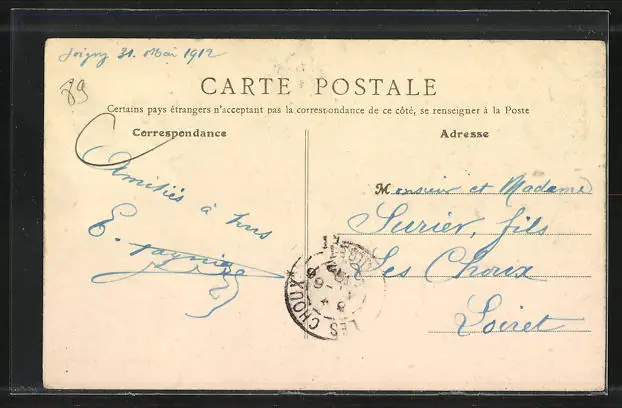 Joigny 31. Mai 1912
89
CARTE POSTALE
Certains pays étrangers n'acceptant pas la correspondance de ce côté, se renseigner à la Poste
Correspondance
Adresse
Amitiés à tous
E.
Monsieur et Madame
Surier, fils
Les Choux
Loiret
LES CHOUX